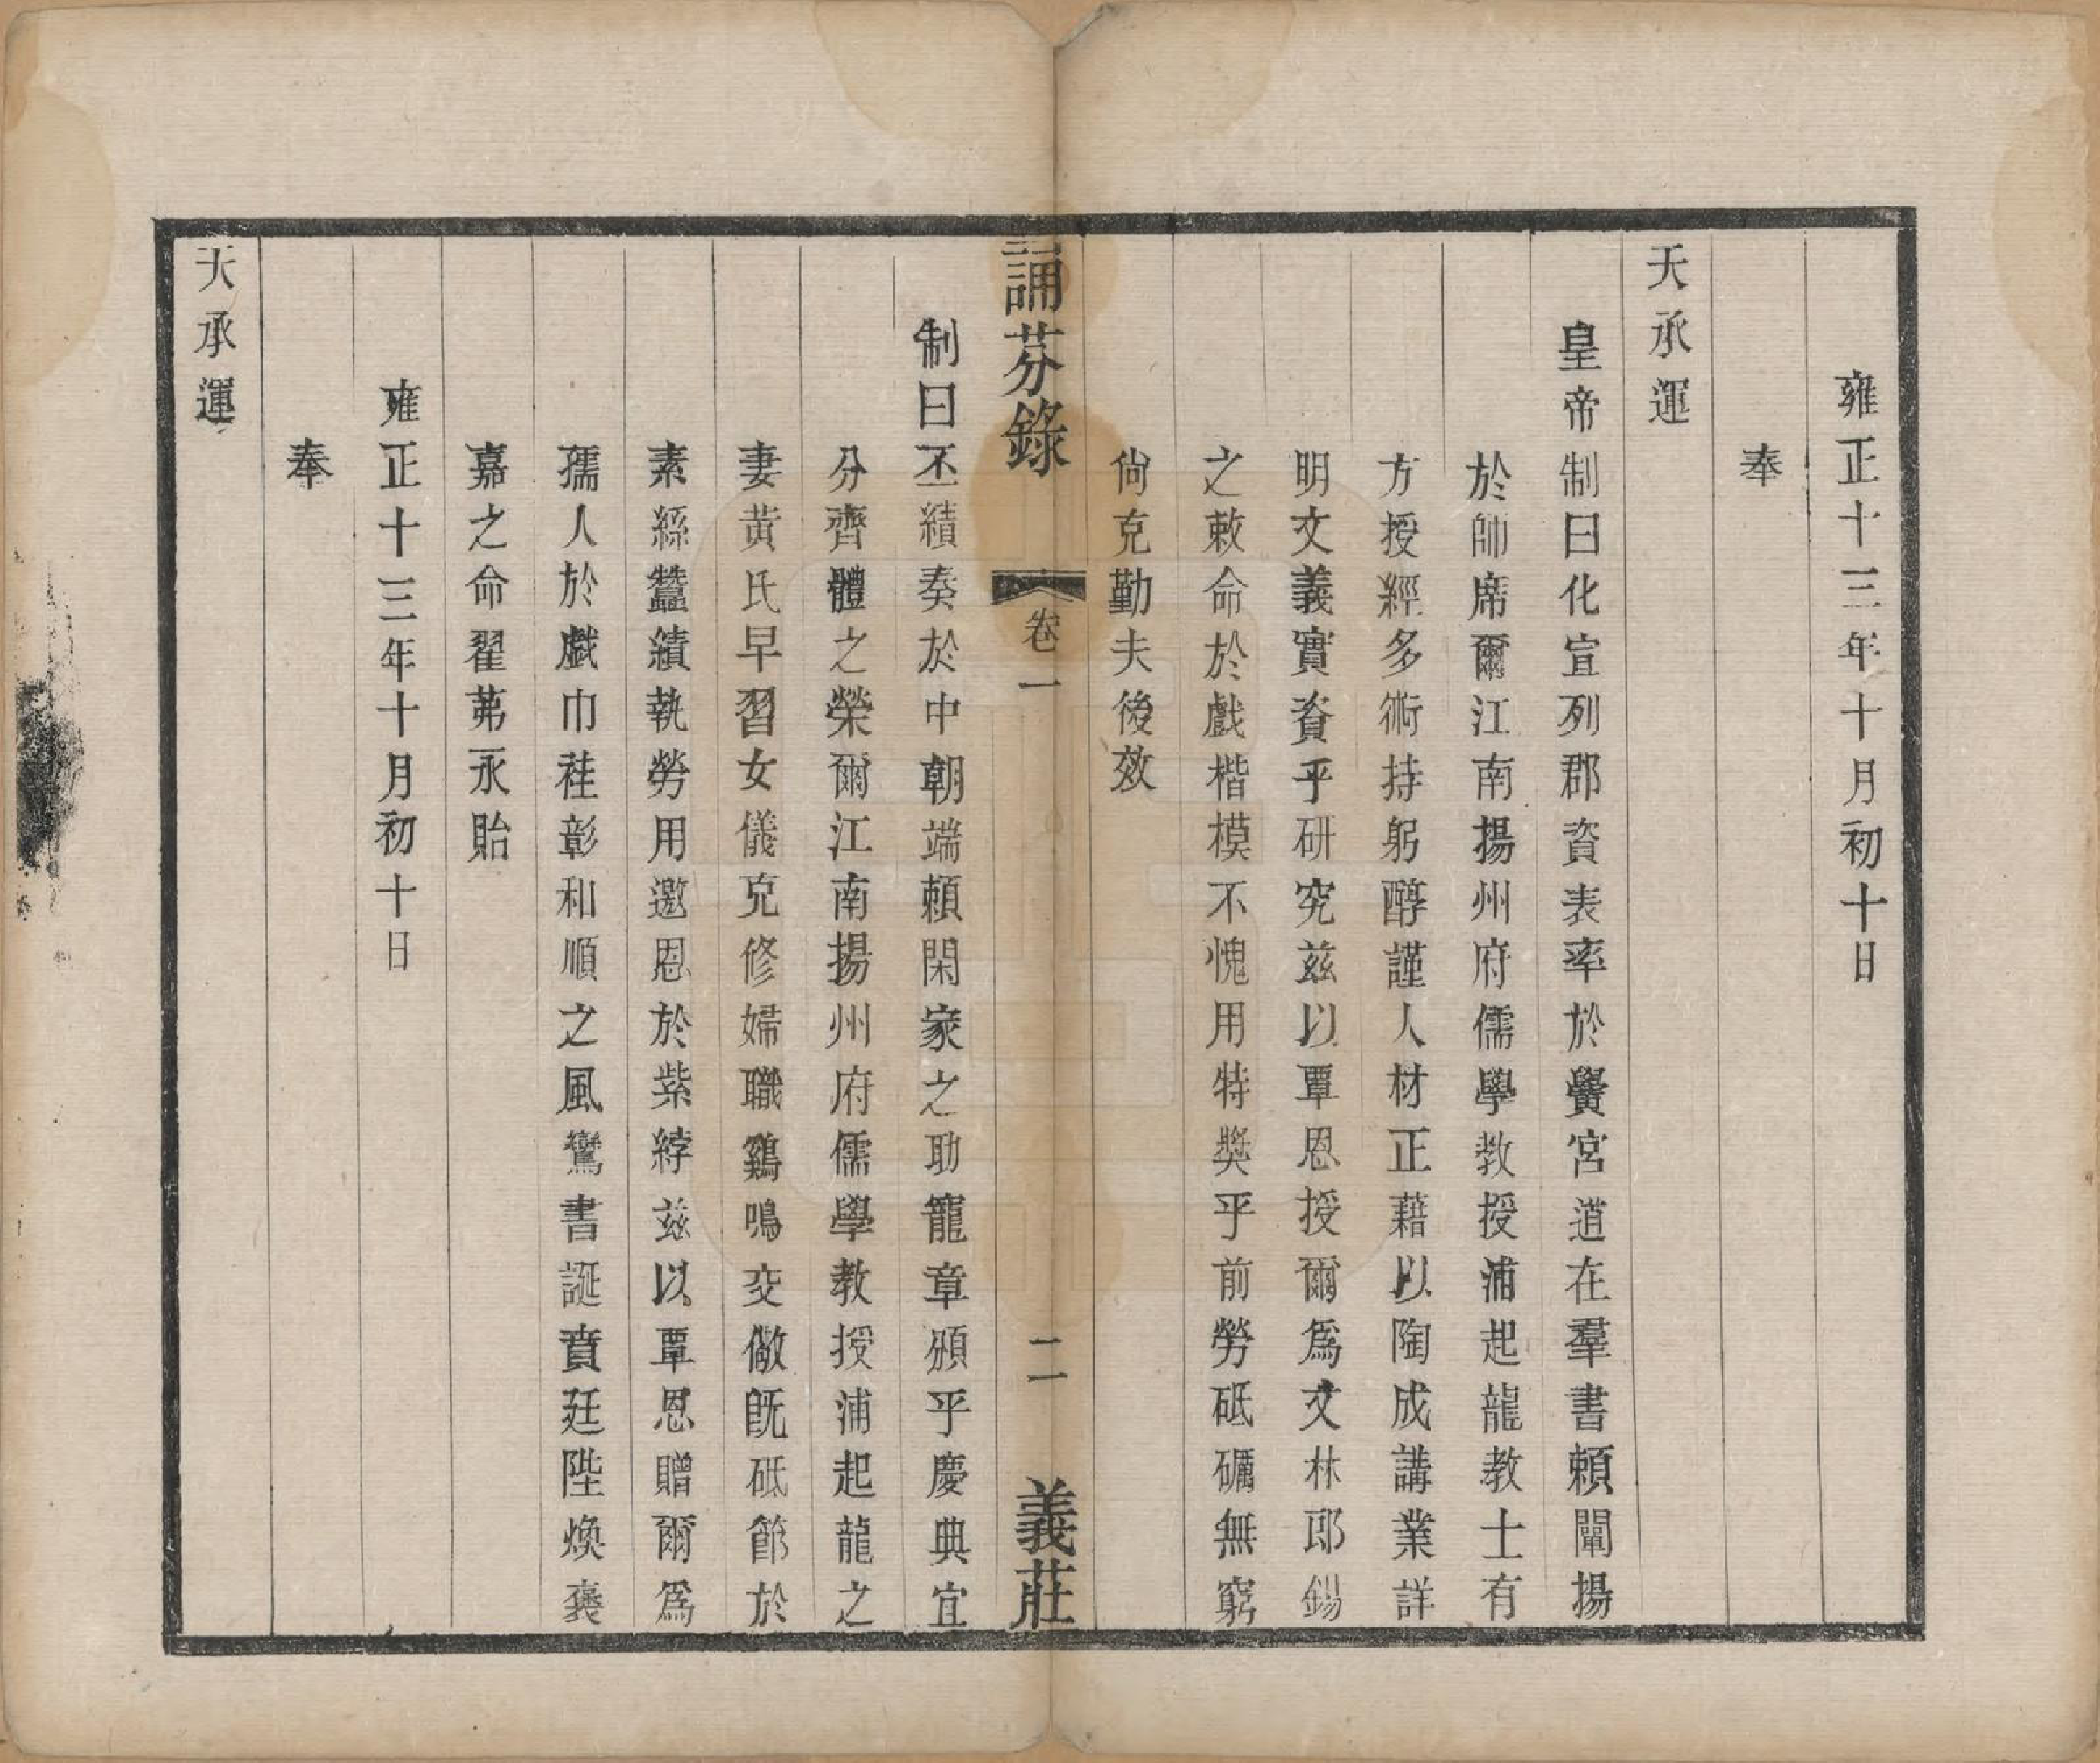 雍正十三年十月初十日
奉
天承運
皇帝制曰化宣列郡資表率於黌宮道在羣書賴闡揚
於師席爾江南揚州府儒學教授浦起龍教士有
方授經多術持躬醇謹人材正藉以陶成講業詳
明文義實資乎研究茲以覃恩授爾爲文林郎錫
之敕命於戲楷模不愧用特獎乎前勞砥礪無窮
尙克勤夫後效
誦芬錄
卷一
二
義莊
制曰丕績奏於中朝端賴閑家之助寵章頒乎慶典宜
分齊體之榮爾江南揚州府儒學教授浦起龍之
妻黃氏早習女儀克修婦職鷄鳴交儆既砥節於
素絲蠶績執勞用邀恩於紫綍茲以覃恩贈爾爲
孺人於戲巾袿彰和順之風鸞書誕賁廷陛煥褒
嘉之命翟茀永貽
雍正十三年十月初十日
奉
天承運